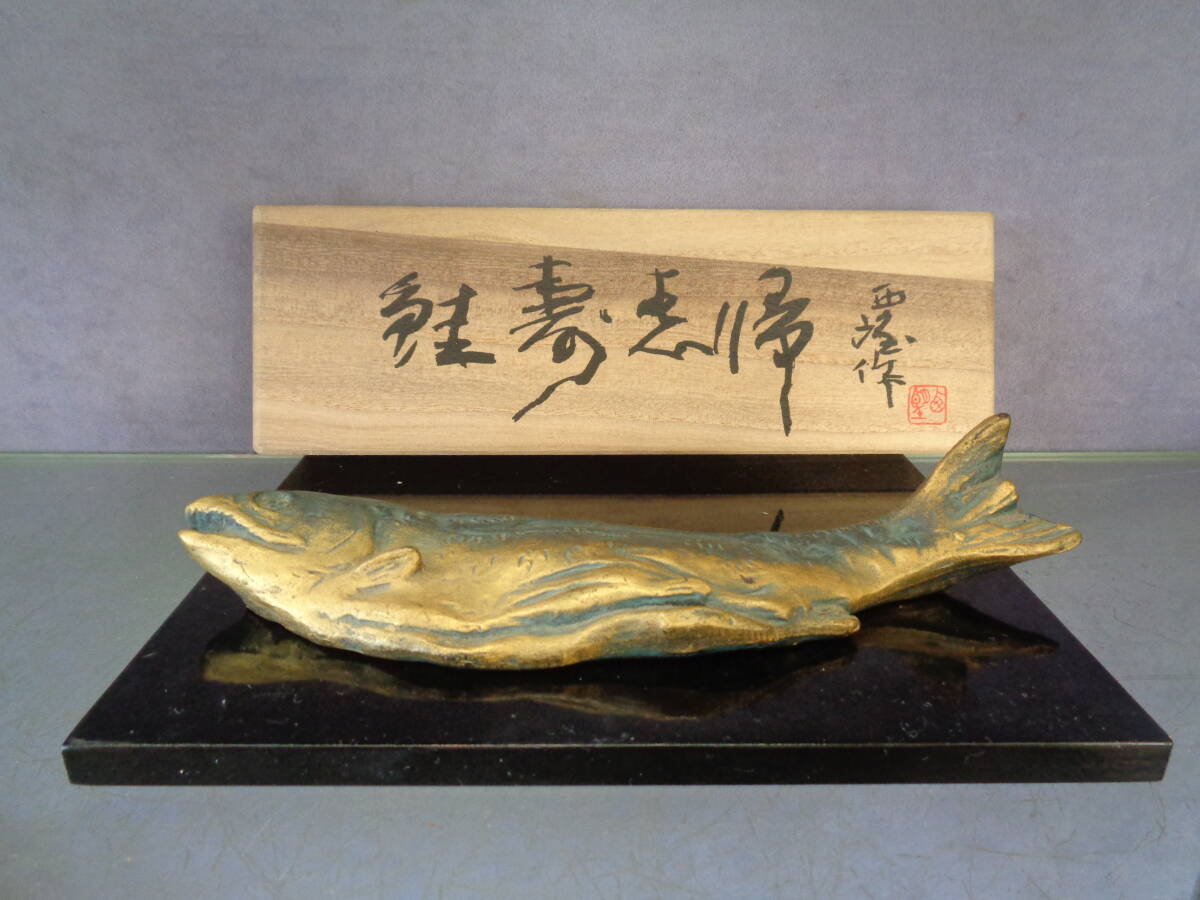 鮭壽志帰
西嶺作